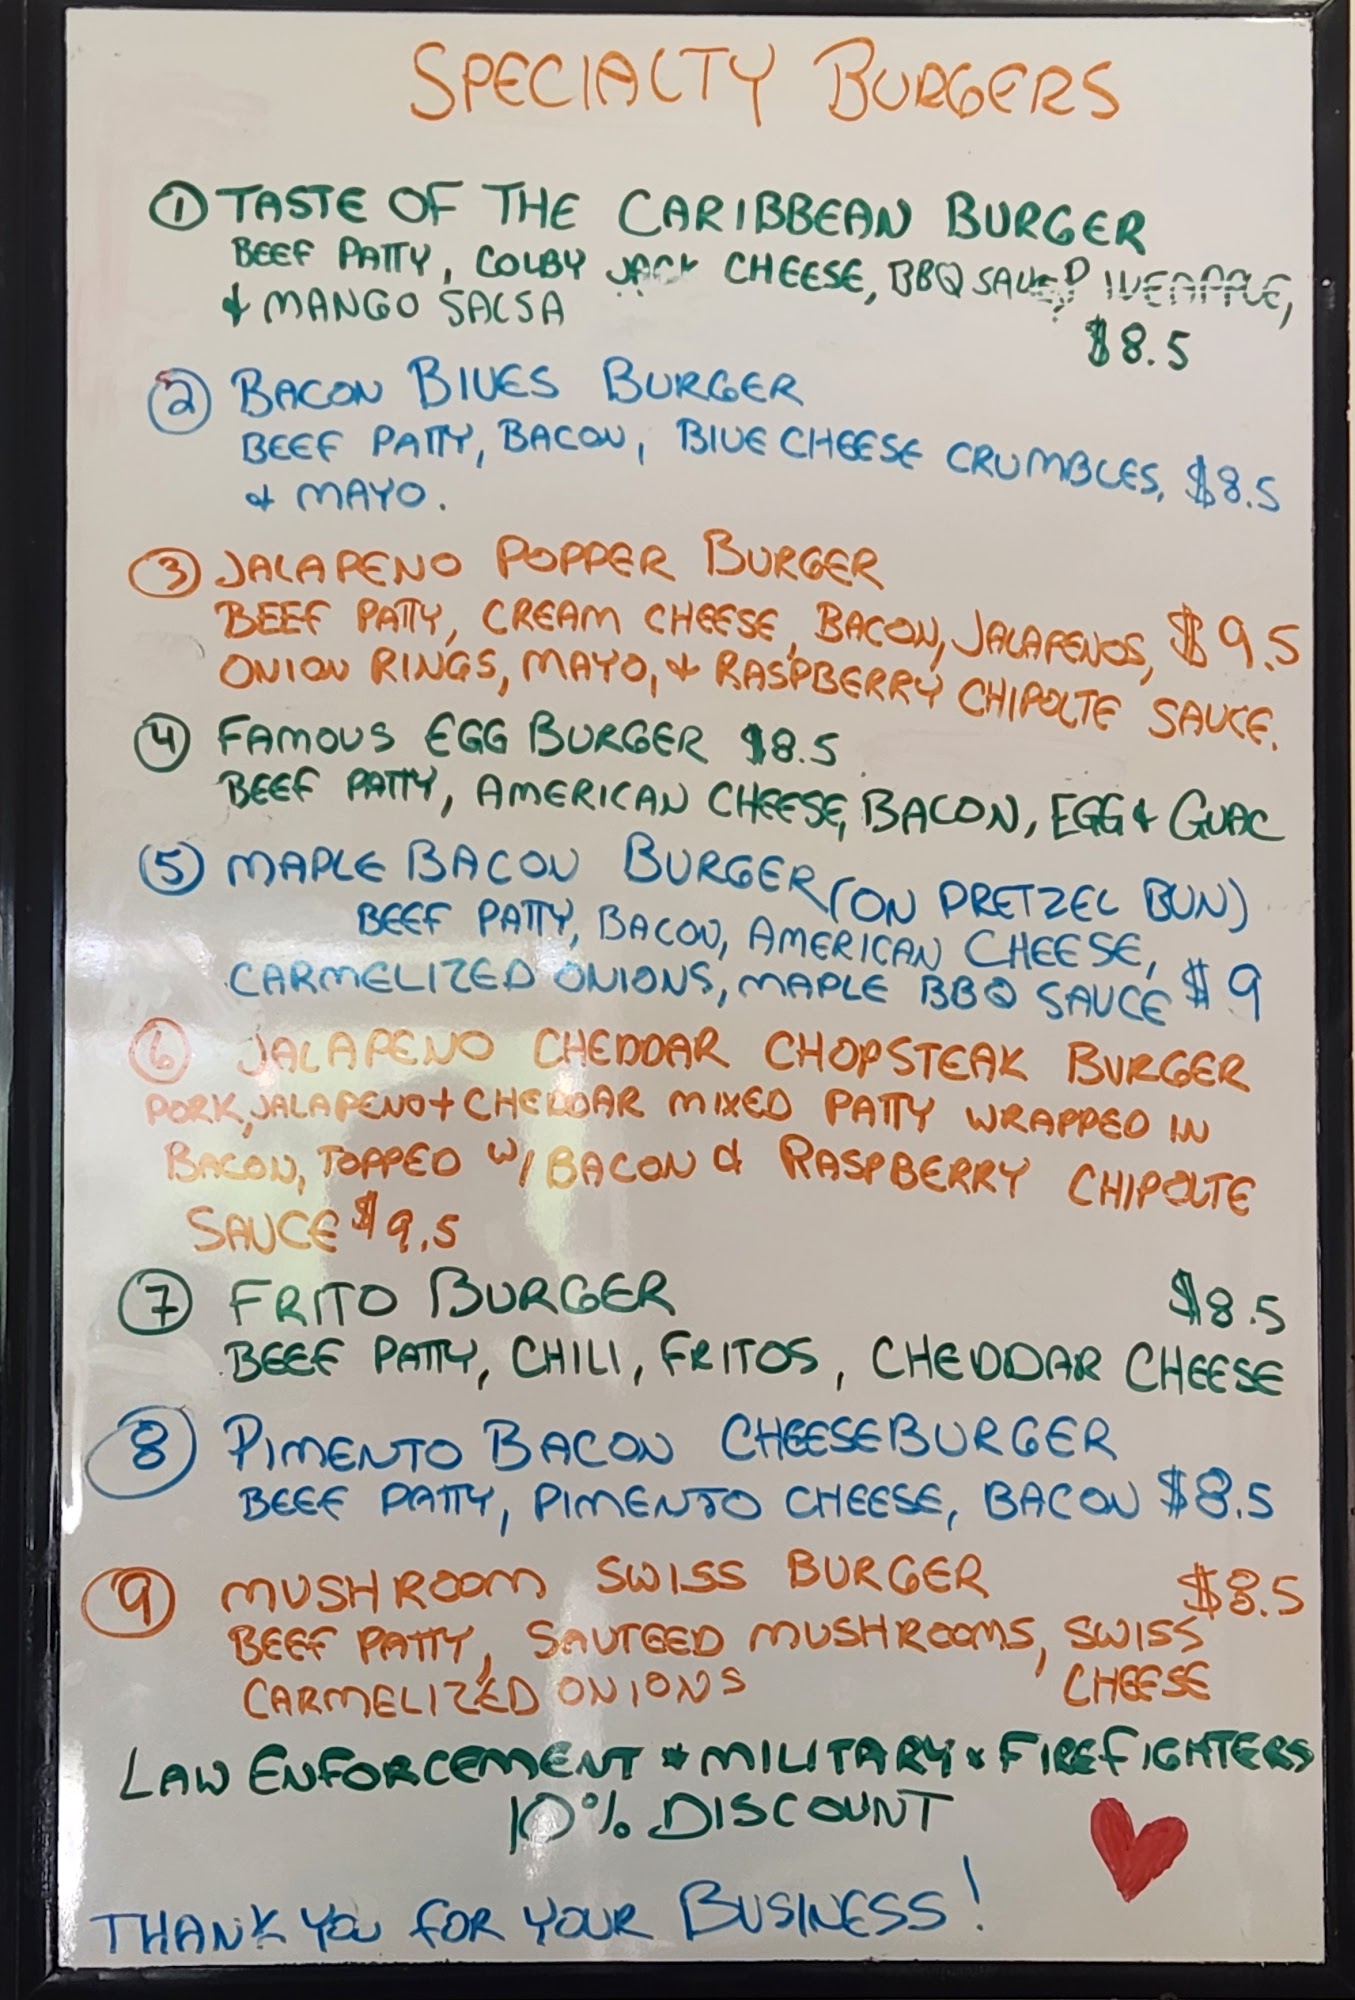 SPECIALTY BURGERS
① TASTE OF THE CARIBBEAN BURGER
BEEF PATTY, COLBY JACK CHEESE, BBQ SAUCE, PINEAPPLE,
& MANGO SALSA
$8.5
② BACON BLUES BURGER
BEEF PATTY, BACON, BLUE CHEESE CRUMBLES, $8.5
& MAYO.
③ JALAPENO POPPER BURGER
BEEF PATTY, CREAM CHEESE, BACON, JALAPENOS, $9.5
ONION RINGS, MAYO, & RASPBERRY CHIPOLTE SAUCE.
④ FAMOUS EGG BURGER $8.5
BEEF PATTY, AMERICAN CHEESE, BACON, EGG & GUAC
⑤ MAPLE BACON BURGER (ON PRETZEL BUN)
BEEF PATTY, BACON, AMERICAN CHEESE,
CARMELIZED ONIONS, MAPLE BBQ SAUCE $9
⑥ JALAPENO CHEDDAR CHOPSTEAK BURGER
PORK, JALAPENO + CHEDDAR MIXED PATTY WRAPPED IN
BACON, TOPPED W/ BACON & RASPBERRY CHIPOLTE
SAUCE $9.5
⑦ FRITO BURGER $8.5
BEEF PATTY, CHILI, FRITOS, CHEDDAR CHEESE
⑧ PIMENTO BACON CHEESEBURGER
BEEF PATTY, PIMENTO CHEESE, BACON $8.5
⑨ MUSHROOM SWISS BURGER $8.5
BEEF PATTY, SAUTEED MUSHROOMS, SWISS
CARMELIZED ONIONS CHEESE
LAW ENFORCEMENT * MILITARY * FIREFIGHTERS
10% DISCOUNT
THANK YOU FOR YOUR BUSINESS!